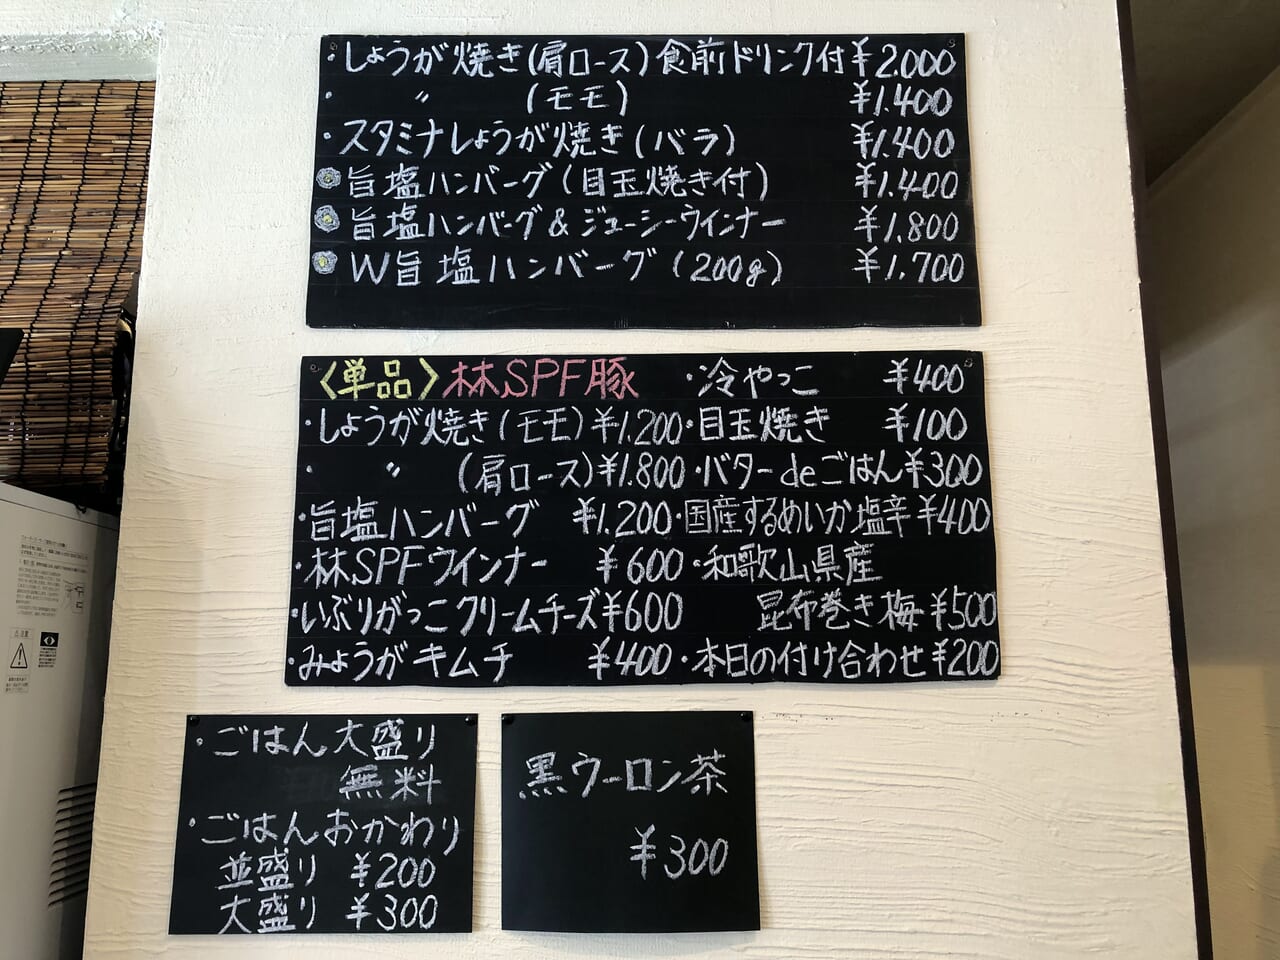 ・しょうが焼き(肩ロース)食前ドリンク付¥2.000
・ 〃 (モモ) ¥1.400
・スタミナしょうが焼き(バラ) ¥1.400
旨塩ハンバーグ(目玉焼き付) ¥1.400
旨塩ハンバーグ&ジューシーウインナー ¥1.800
W旨塩ハンバーグ(200g) ¥1.700
〈単品〉林SPF豚
・しょうが焼き(モモ)¥1.200
・ 〃 (肩ロース)¥1.800
・旨塩ハンバーグ ¥1.200
・林SPFウインナー ¥600
・いぶりがっこクリームチーズ¥600
・みょうがキムチ ¥400
・冷やっこ ¥400
・目玉焼き ¥100
・バターdeごはん¥300
・国産するめいか塩辛¥400
・和歌山県産
昆布巻き梅¥500
・本日の付け合わせ¥200
・ごはん大盛り
無料
・ごはんおかわり
並盛り ¥200
大盛り ¥300
黒ウーロン茶
¥300
注意